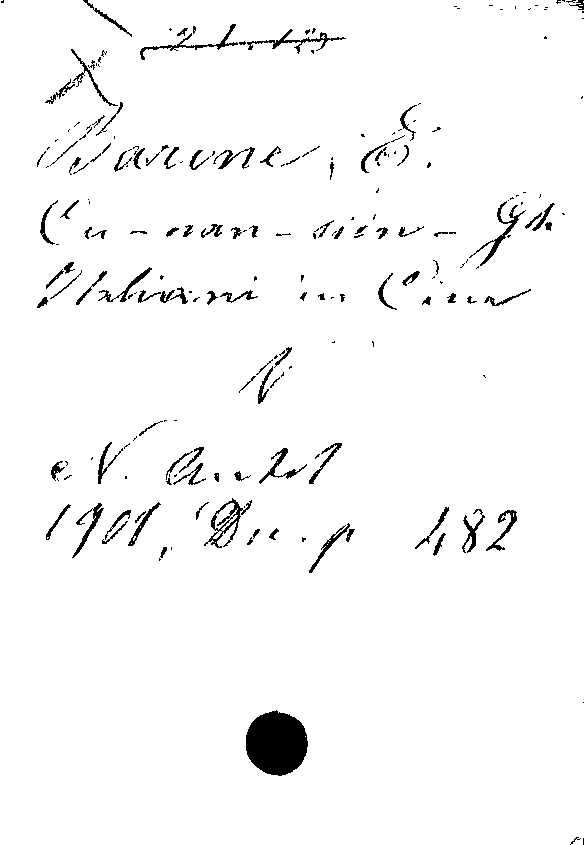 Barone, E.
Cu-nan-sien- Gli
Italiani in Cina
N. Antol
1901, Dic. p 482